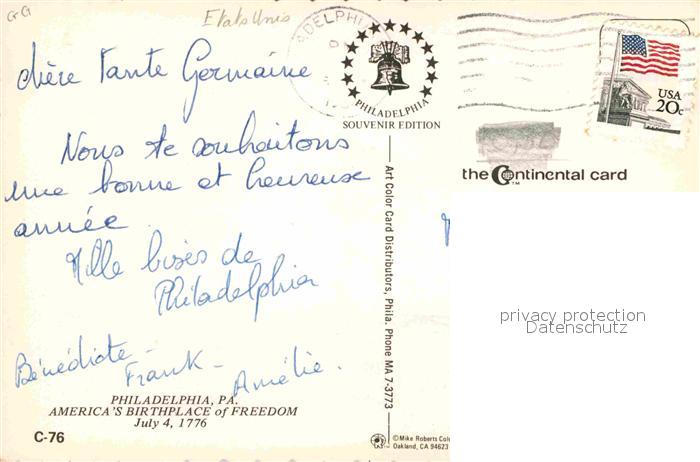 GG
Etats Unis
chère Tante Germaine
Nous te souhaitons
une bonne et heureuse
année
Mille bises de
Philadelphia
Bénédicte -
Frank -
Amélie.
PHILADELPHIA, PA.
AMERICA'S BIRTHPLACE of FREEDOM
July 4, 1776
C-76
ADELPHI
PHILADELPHIA
SOUVENIR EDITION
Art Color Card Distributors, Phila. Phone MA 7-3773
©Mike Roberts Col
Oakland, CA 94623
USA
20c
the Continental card
TM
privacy protection
Datenschutz